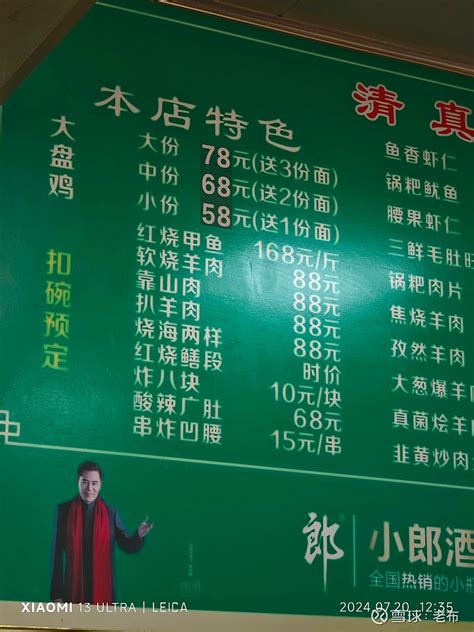 本店特色
大盘鸡
大份 78元(送3份面)
中份 68元(送2份面)
小份 58元(送1份面)
扣碗预定
红烧甲鱼 168元/斤
软烧羊肉 88元
靠山肉 88元
扒羊肉 88元
烧海两样 88元
红烧鳝段 时价
炸八块 10元/块
酸辣广肚 68元
串炸凹腰 15元/串
清真
鱼香虾仁
锅粑鱿鱼
腰果虾仁
三鲜毛肚
锅粑肉片
焦烧羊肉
孜然羊肉
大葱爆羊
真菌烩羊
韭黄炒肉
郎 小郎酒
全国热销的小
XIAOMI 13 ULTRA | LEICA
2024.07.20 12:35
雪球:老布